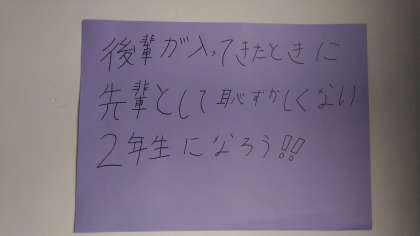 後輩が入ってきたときに
先輩として恥ずかしくない
2年生になろう!!